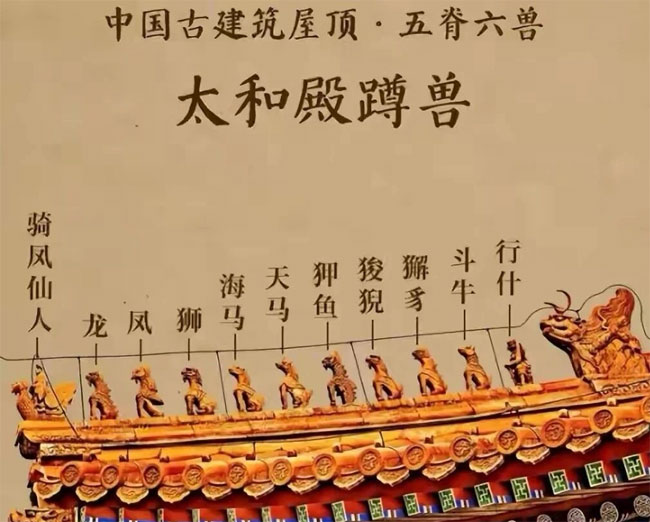 中国古建筑屋顶·五脊六兽
太和殿蹲兽
骑凤仙人
龙
凤
狮
海马
天马
狎鱼
狻猊
獬豸
斗牛
行什